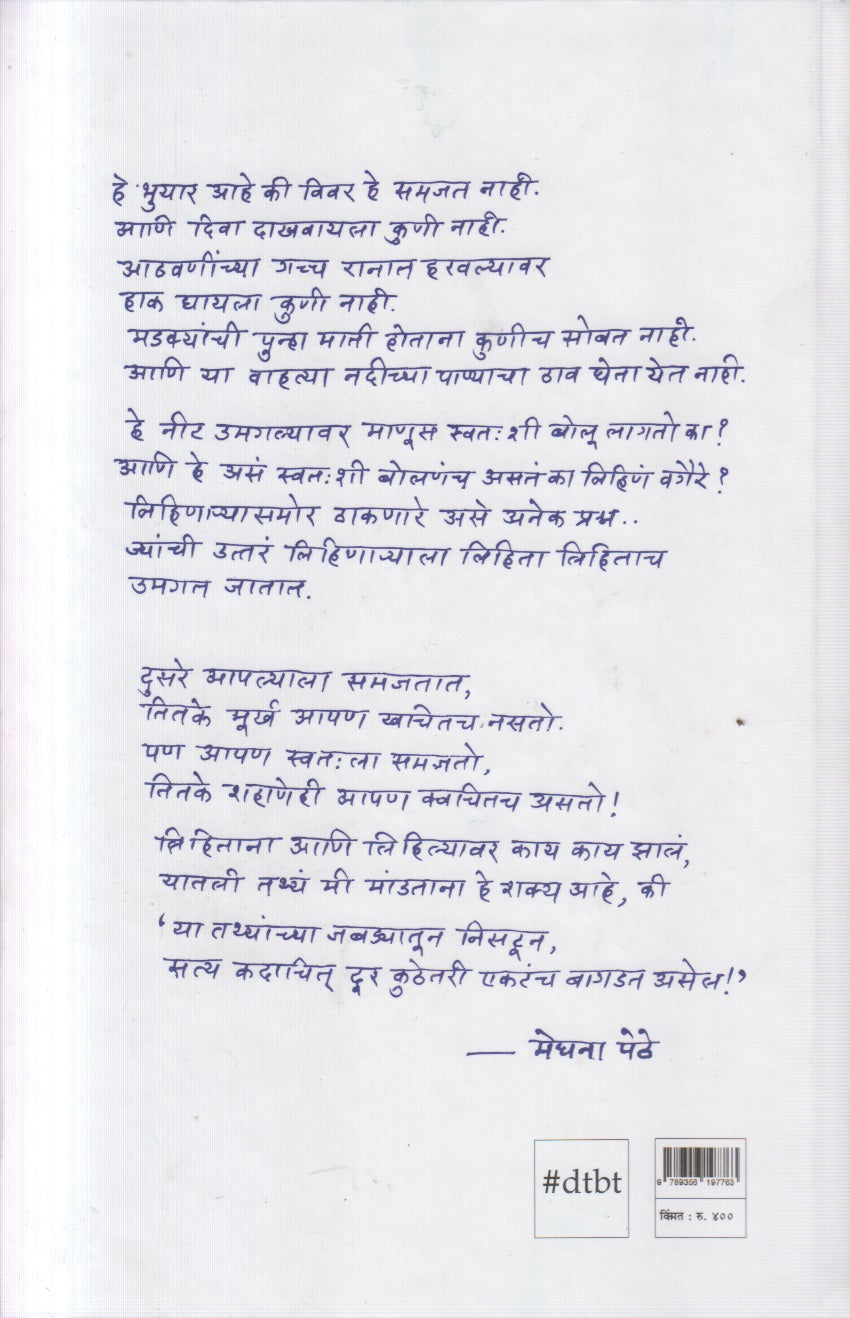 हे भुयार आहे की विवर हे समजत नाही.
आणि दिवा दाखवायला कुणी नाही.
आठवणींच्या गच्च रानात हरवल्यावर
हाक घायला कुणी नाही.
मडक्यांची पुन्हा माती होताना कुणीच सोबत नाही.
आणि या वाहत्या नदीच्या पाण्याचा ठाव घेता येत नाही.
हे नीट उमगल्यावर माणूस स्वतःशी बोलू लागतो का?
आणि हे असं स्वतःशी बोलणंच असतं का लिहिणं वगैरे?
लिहिणाऱ्यासमोर ठाकणारे असे अनेक प्रश्न..
ज्यांची उत्तरं लिहिणाऱ्याला लिहिता लिहिताच
उमगत जातात.
दुसरे आपल्याला समजतात,
तितके मूर्ख आपण खचितच नसतो.
पण आपण स्वतःला समजतो,
तितके शहाणेही आपण क्वचितच असतो!
लिहिताना आणि लिहिल्यावर काय काय झालं,
यातली तथ्यं मी मांडताना हे शक्य आहे, की
'या तथ्यांच्या जबड्यातून निसटून,
सत्य कदाचित् दूर कुठेतरी एकटंच बागडत असेल!'
— मेघना पेठे
#dtbt
9 789356 197763
किंमत : रु. ४००